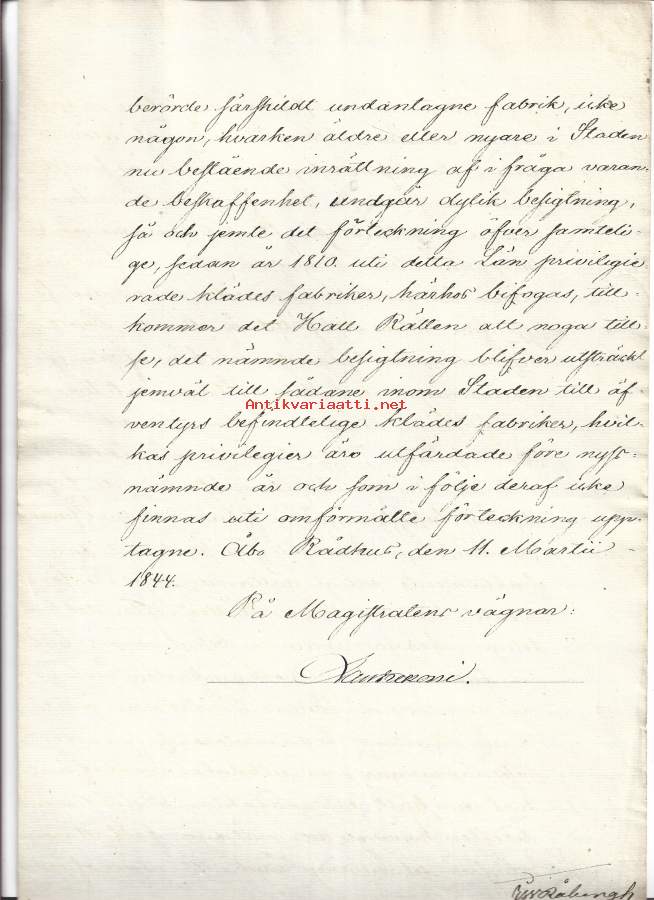 berörde särskildt undantagne fabrik, icke
någon, hvarken äldre eller nyare i Staden
nu bestående inrättning af i fråga varan-
de beskaffenhet, undgår dylik besigtning,
så och jemte det förteckning öfver samteli-
ge, sedan år 1810 uti detta Län privilegie
rade klädes fabriker, härhos bifogas, till-
kommer det Hall Rätten att noga till-
se, det nämnde besigtning blifver utsträckt
jemväl till sådane inom Staden till äf-
Antikvariaatti.net
ventyrs befindtelige klädes fabriker, hvil-
kas privilegier äro utfärdade före nyss-
nämnde år och som i följe deraf icke
finnas uti omförmälte förteckning upp-
tagne. Åbo Rådhus, den 11. Martii -
1844.
På Magistratens vägnar: